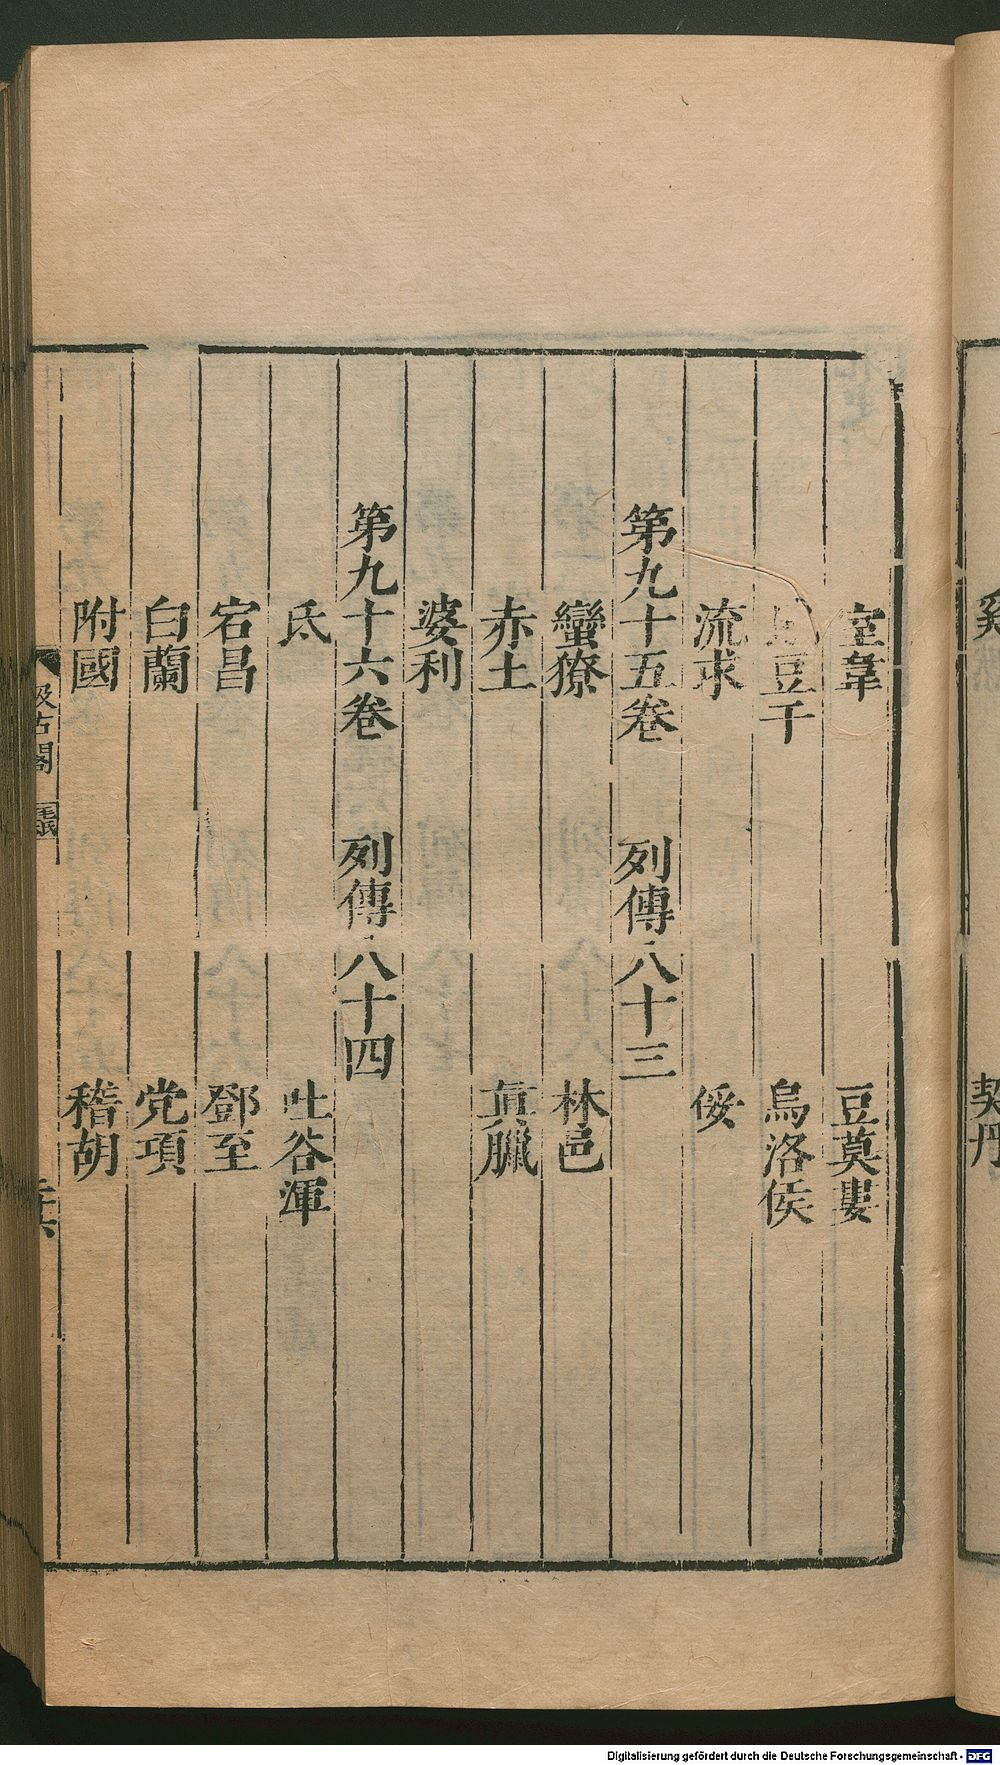 奚
契丹
室韋
豆莫婁
豆干
烏洛侯
流求
倭
第九十五卷 列傳八十三
蠻獠
林邑
赤土
真臘
婆利
第九十六卷 列傳八十四
氐
吐谷渾
宕昌
鄧至
白蘭
党項
附國
稽胡
汲古閣
Digitalisierung gefördert durch die Deutsche Forschungsgemeinschaft - DFG